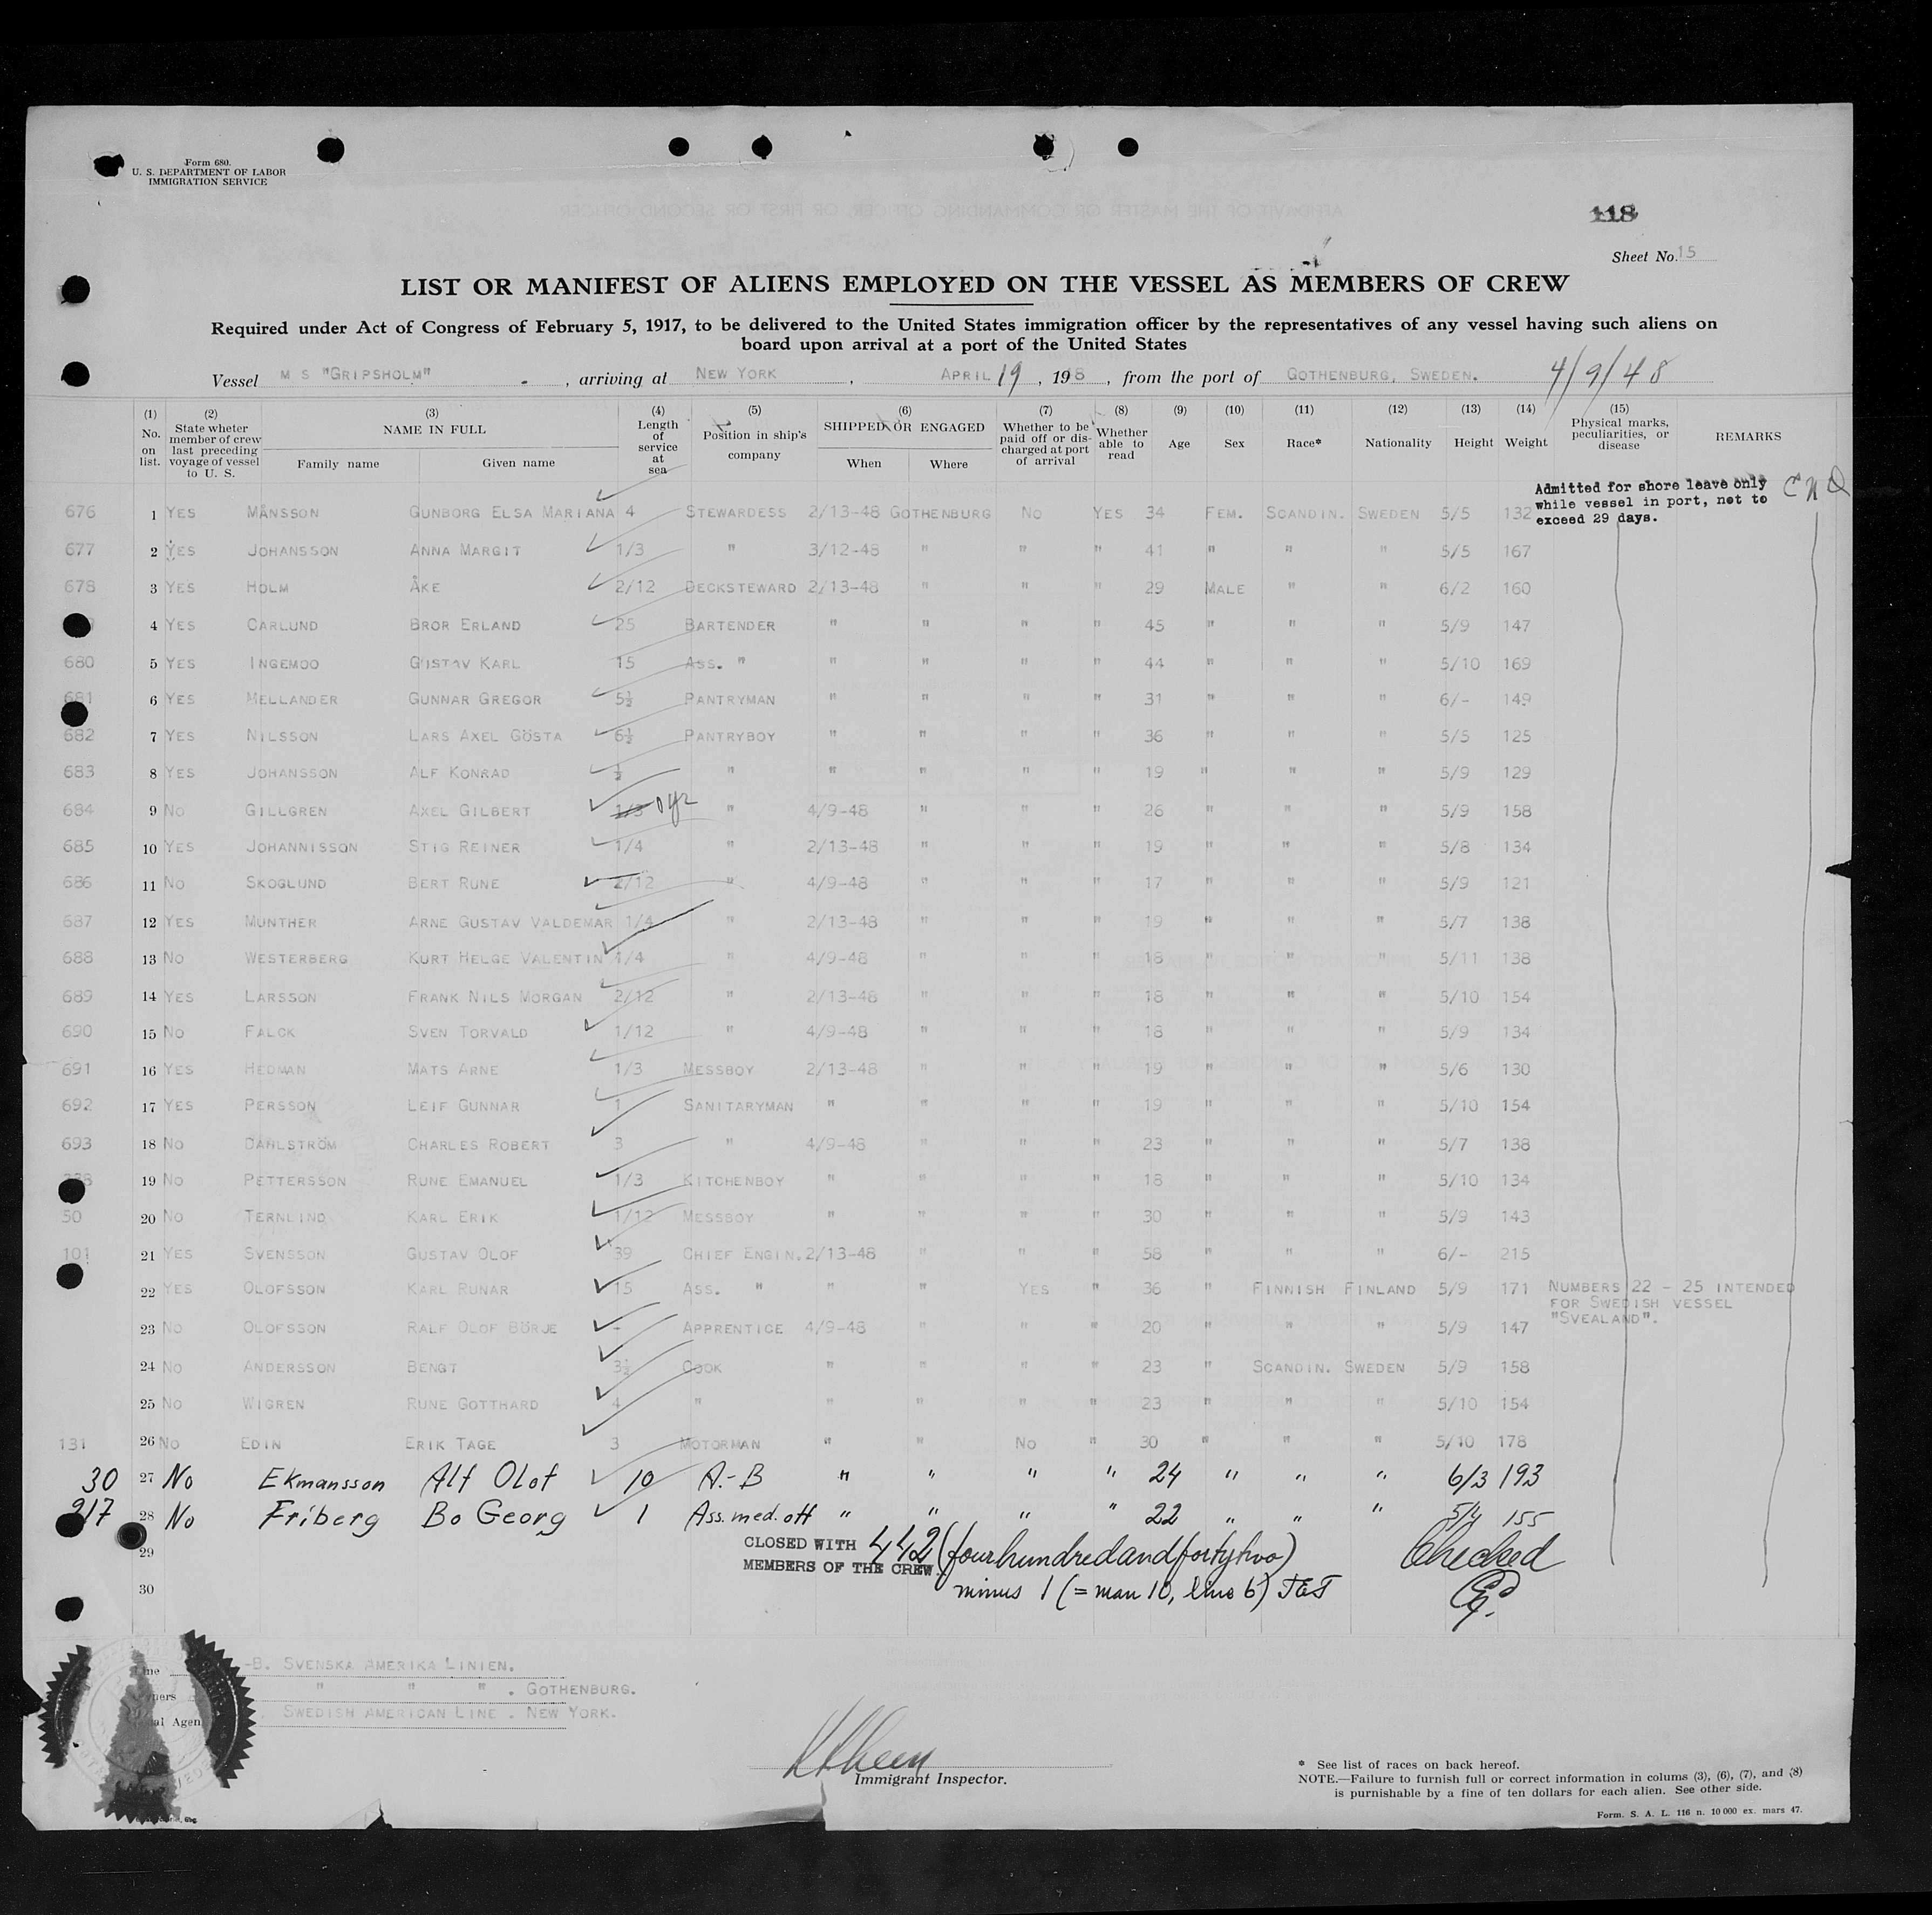 Form 680.
U. S. DEPARTMENT OF LABOR
IMMIGRATION SERVICE
118
Sheet No. 15
LIST OR MANIFEST OF ALIENS EMPLOYED ON THE VESSEL AS MEMBERS OF CREW
Required under Act of Congress of February 5, 1917, to be delivered to the United States immigration officer by the representatives of any vessel having such aliens on
board upon arrival at a port of the United States
Vessel M S "GRIPSHOLM" , arriving at NEW YORK , APRIL 19 , 1948 , from the port of GOTHENBURG, SWEDEN. 4/9/48
(1) No. on list. (2) State wheter member of crew last preceding voyage of vessel to U. S. (3) NAME IN FULL Family name Given name (4) Length of service at sea (5) Position in ship's company (6) SHIPPED OR ENGAGED When Where (7) Whether to be paid off or discharged at port of arrival (8) Whether able to read (9) Age (10) Sex (11) Race* (12) Nationality (13) Height (14) Weight (15) Physical marks, peculiarities, or disease REMARKS
Admitted for shore leave only
while vessel in port, not to
exceed 29 days.
676 1 YES MÅNSSON GUNBORG ELSA MARIANA 4 STEWARDESS 2/13-48 GOTHENBURG NO YES 34 FEM. SCANDIN. SWEDEN 5/5 132
677 2 YES JOHANSSON ANNA MARGIT 1/3 " 3/12-48 " " " 41 " " " 5/5 167
678 3 YES HOLM ÅKE 2/12 DECKSTEWARD 2/13-48 " " " 29 MALE " " 6/2 160
4 YES CARLUND BROR ERLAND 25 BARTENDER " " " " 45 " " " 5/9 147
680 5 YES INGEMOO GUSTAV KARL 15 ASS. " " " " " 44 " " " 5/10 169
681 6 YES MELLANDER GUNNAR GREGOR 5½ PANTRYMAN " " " " 31 " " " 6/- 149
682 7 YES NILSSON LARS AXEL GÖSTA 6½ PANTRYBOY " " " " 36 " " " 5/5 125
683 8 YES JOHANSSON ALF KONRAD ½ " " " " " 19 " " " 5/9 129
684 9 NO GILLGREN AXEL GILBERT 1/3 0 yr " 4/9-48 " " " 26 " " " 5/9 158
685 10 YES JOHANNISSON STIG REINER 1/4 " 2/13-48 " " " 19 " " " 5/8 134
686 11 NO SKOGLUND BERT RUNE 2/12 " 4/9-48 " " " 17 " " " 5/9 121
687 12 YES MUNTHER ARNE GUSTAV VALDEMAR 1/4 " 2/13-48 " " " 19 " " " 5/7 138
688 13 NO WESTERBERG KURT HELGE VALENTIN 1/4 " 4/9-48 " " " 18 " " " 5/11 138
689 14 YES LARSSON FRANK NILS MORGAN 2/12 " 2/13-48 " " " 18 " " " 5/10 154
690 15 NO FALCK SVEN TORVALD 1/12 " 4/9-48 " " " 18 " " " 5/9 134
691 16 YES HEDMAN MATS ARNE 1/3 MESSBOY 2/13-48 " " " 19 " " " 5/6 130
692 17 YES PERSSON LEIF GUNNAR 1 SANITARYMAN " " " " 19 " " " 5/10 154
693 18 NO DAHLSTRÖM CHARLES ROBERT 3 " 4/9-48 " " " 23 " " " 5/7 138
19 NO PETTERSSON RUNE EMANUEL 1/3 KITCHENBOY " " " " 18 " " " 5/10 134
50 20 NO TERNLIND KARL ERIK 1/12 MESSBOY " " " " 30 " " " 5/9 143
101 21 YES SVENSSON GUSTAV OLOF 39 CHIEF ENGIN. 2/13-48 " " " 58 " " " 6/- 215
22 YES OLOFSSON KARL RUNAR 15 ASS. " " " YES " 36 " FINNISH FINLAND 5/9 171 NUMBERS 22 - 25 INTENDED
FOR SWEDISH VESSEL
"SVEALAND".
23 NO OLOFSSON RALF OLOF BÖRJE - APPRENTICE 4/9-48 " " " 20 " " " 5/9 147
24 NO ANDERSSON BENGT 3½ COOK " " " " 23 " SCANDIN. SWEDEN 5/9 158
25 NO WIGREN RUNE GOTTHARD 4 " " " " " 23 " " " 5/10 154
131 26 NO EDIN ERIK TAGE 3 MOTORMAN " " NO " 30 " " " 5/10 178
30 27 No Ekmansson Alf Olof 10 A.-B " " " " 24 " " " 6/3 193
217 28 No Friberg Bo Georg 1 Ass. med. off " " " " 22 " " " 5/4 155
29 CLOSED WITH 442 (fourhundredandfortytwo) Checked
MEMBERS OF THE CREW.
30 minus 1 (= man 10, line 6)
-B. SVENSKA AMERIKA LINIEN.
" " " . GOTHENBURG.
Agen SWEDISH AMERICAN LINE . NEW YORK.
Immigrant Inspector.
* See list of races on back hereof.
NOTE.—Failure to furnish full or correct information in colums (3), (6), (7), and (8)
is purnishable by a fine of ten dollars for each alien. See other side.
Form. S. A. L. 116 n. 10 000 ex. mars 47.